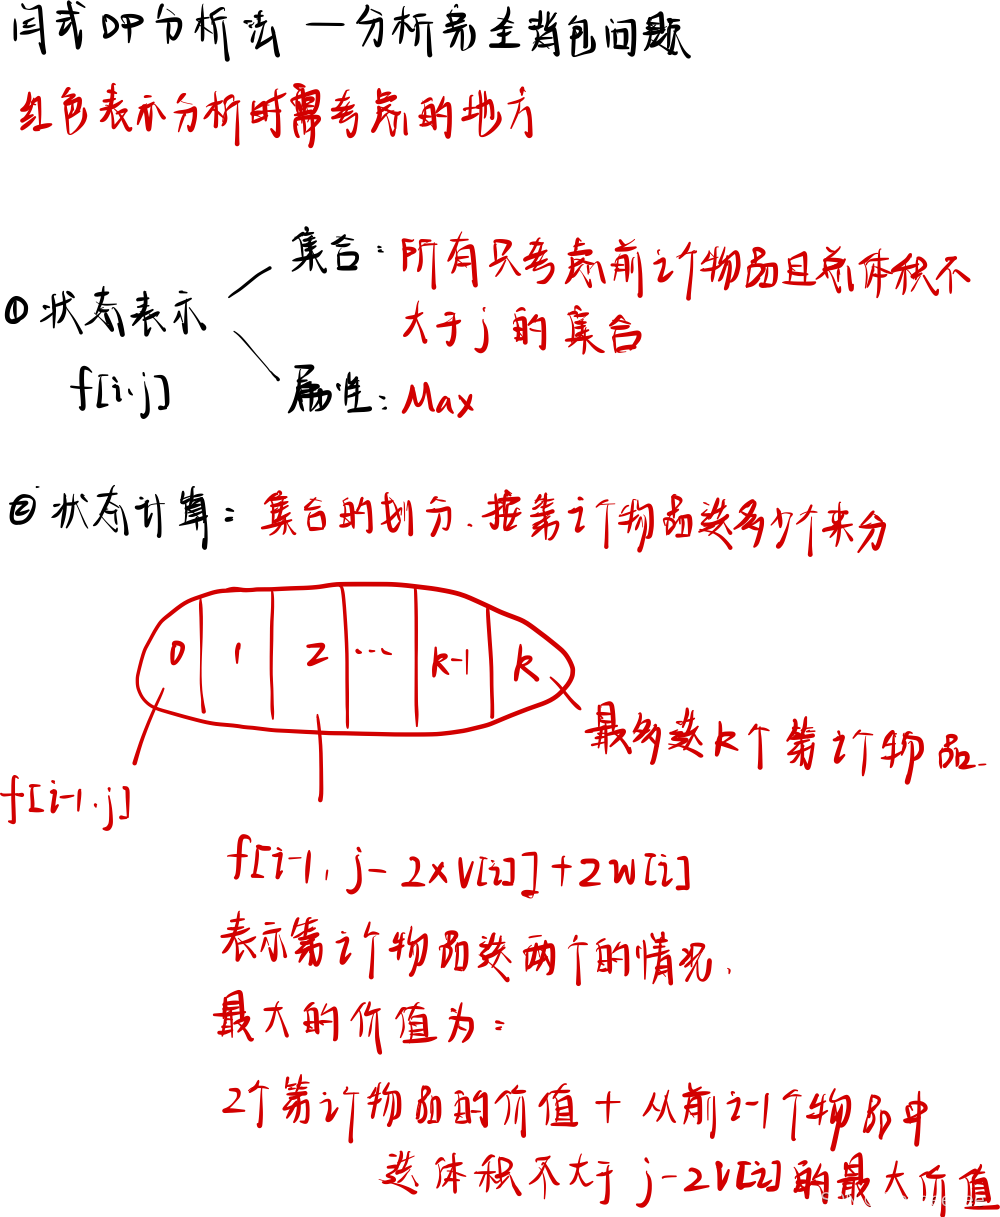 闫式DP分析法 — 分析完全背包问题
红色表示分析时需考虑的地方
集合: 所有只考虑前i个物品且总体积不
大于j的集合
① 状态表示
f[i,j]
属性: Max
② 状态计算: 集合的划分、按第i个物品选多少个来分
0 1 2 ... k-1 k
最多选k个第i个物品.
f[i-1,j]
f[i-1, j-2×v[i]]+2w[i]
表示第i个物品选两个的情况.
最大的价值为:
2个第i个物品的价值 + 从前i-1个物品中
选体积不大于j-2v[i]的最大价值